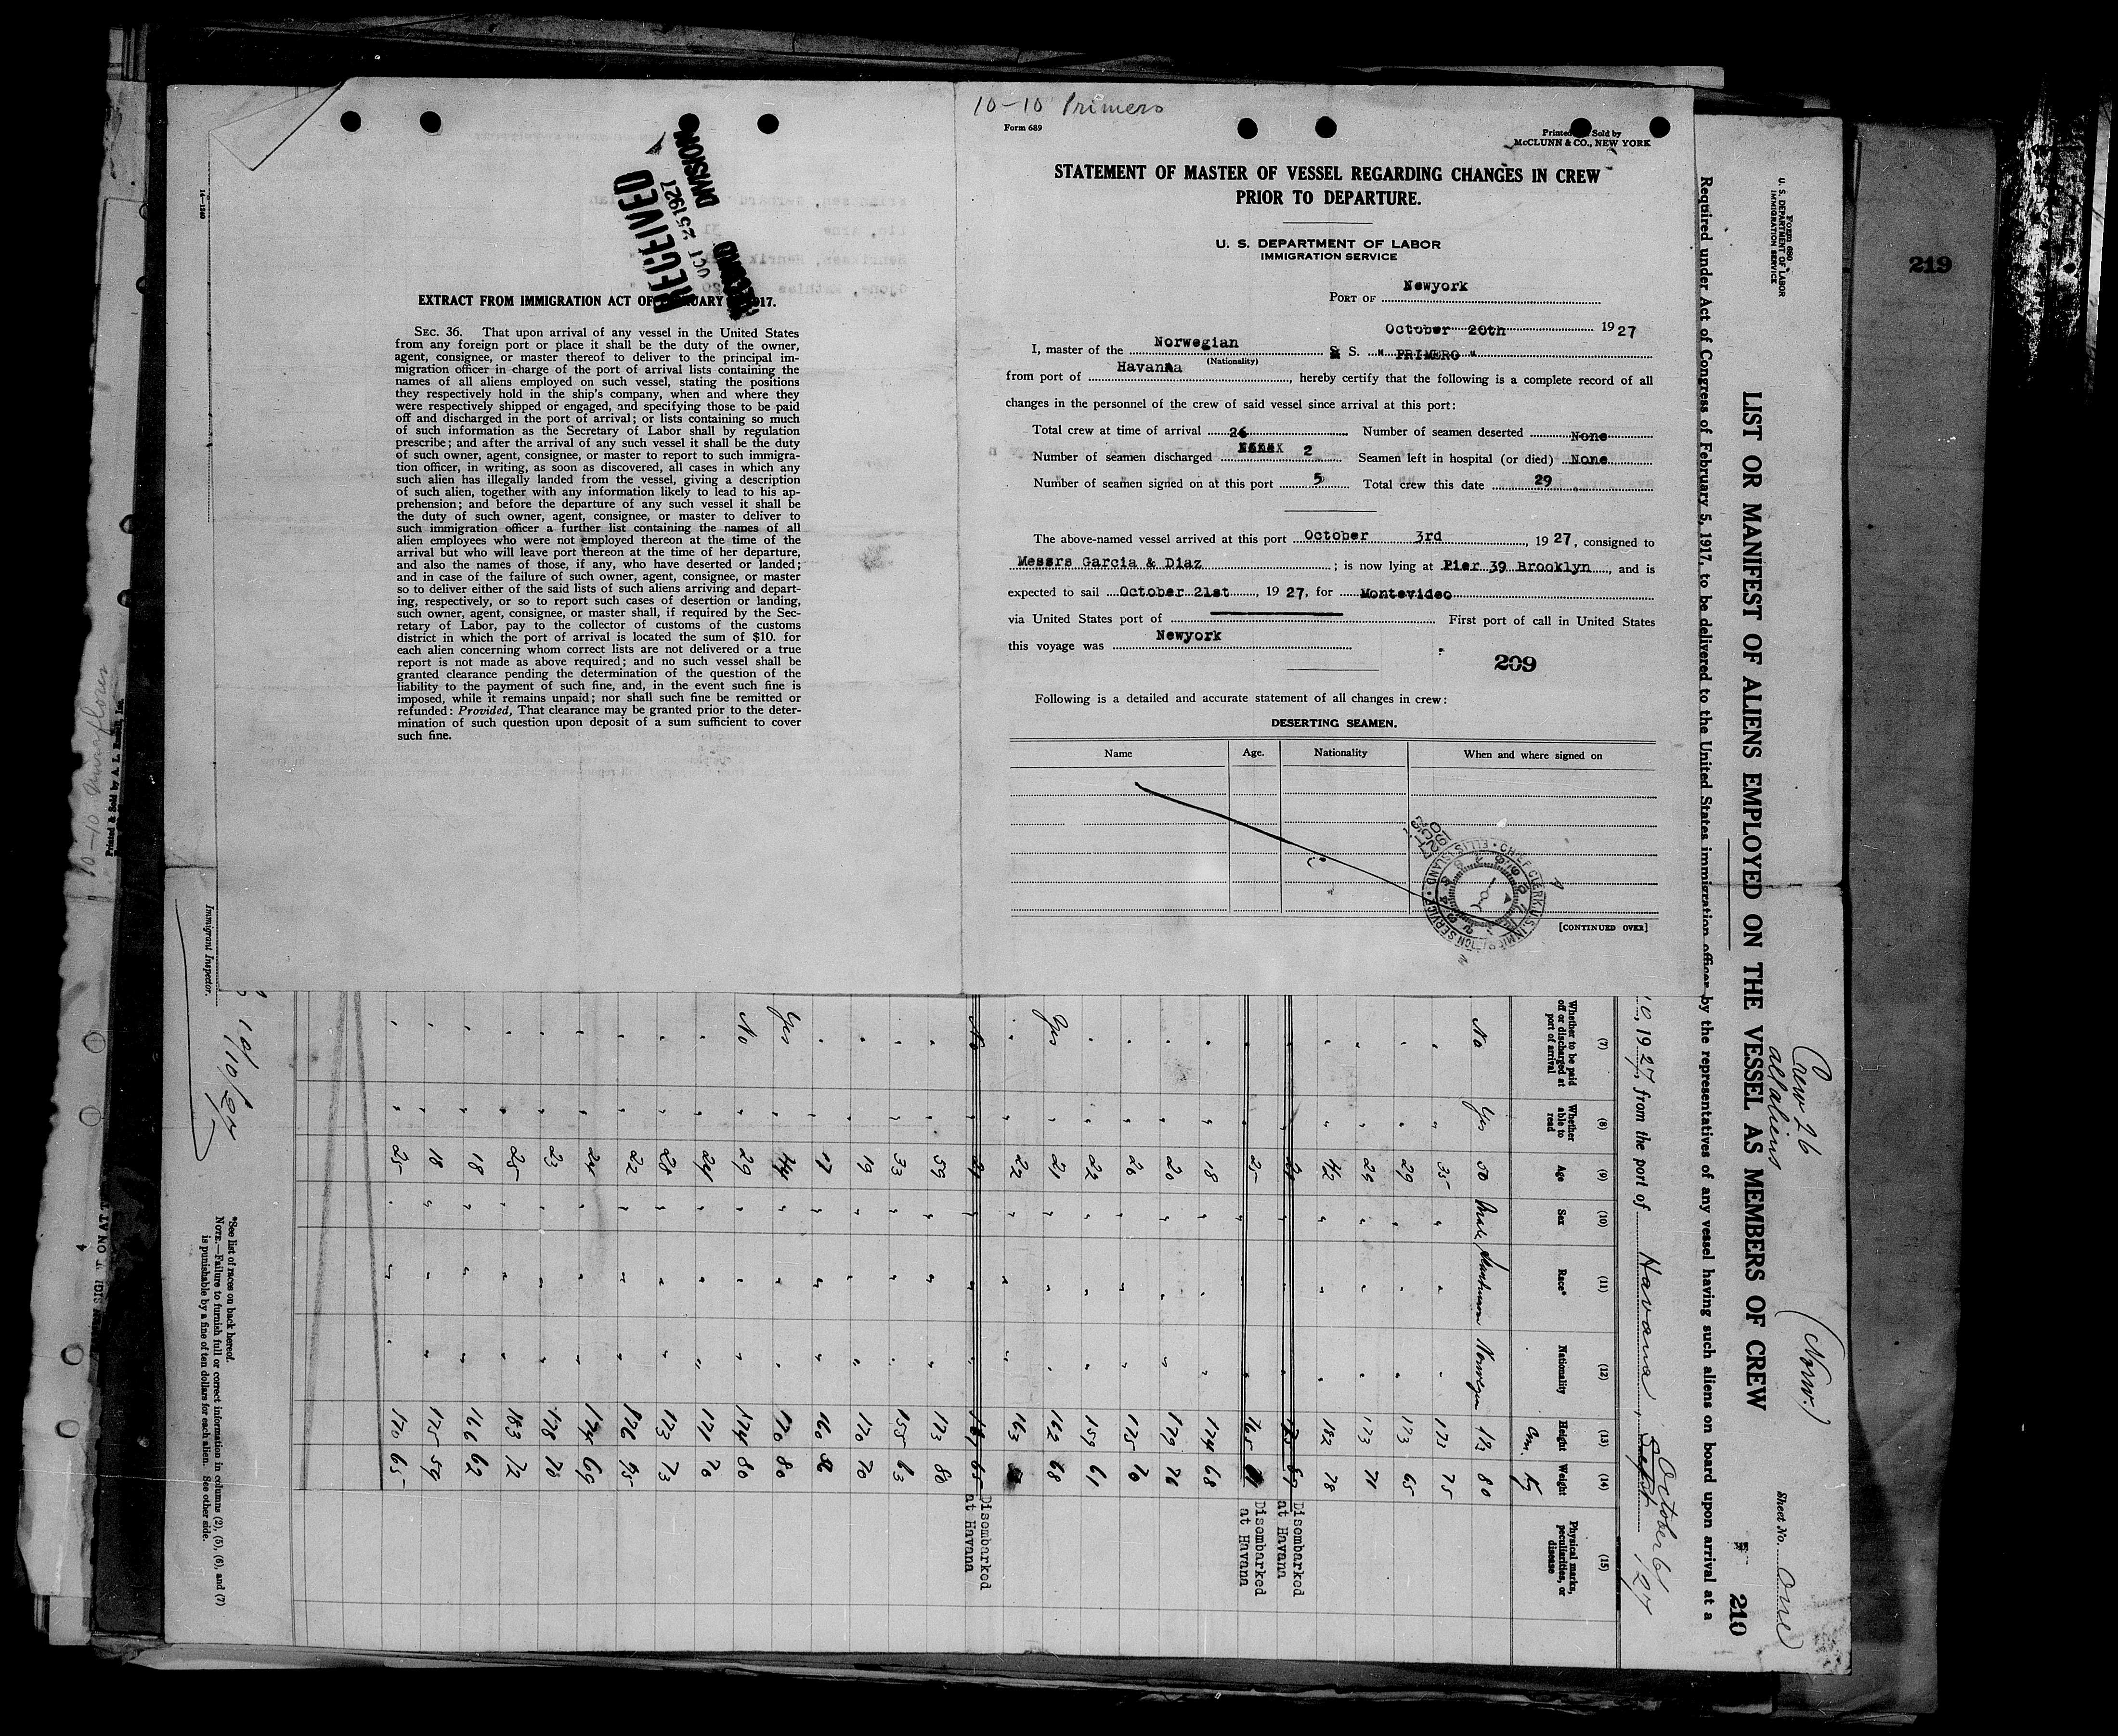 10-10 Primero
Form 689
Printed Sold by
McCLUNN & CO., NEW YORK
STATEMENT OF MASTER OF VESSEL REGARDING CHANGES IN CREW
PRIOR TO DEPARTURE.
U. S. DEPARTMENT OF LABOR
IMMIGRATION SERVICE
PORT OF Newyork
October 20th 1927
I, master of the Norwegian S. S. " PRIMERO "
(Nationality)
from port of Havana, hereby certify that the following is a complete record of all
changes in the personnel of the crew of said vessel since arrival at this port:
Total crew at time of arrival 26 Number of seamen deserted None
Number of seamen discharged 2 Seamen left in hospital (or died) None
Number of seamen signed on at this port 5 Total crew this date 29
The above-named vessel arrived at this port October 3rd, 1927, consigned to
Messrs Garcia & Diaz; is now lying at Pier 39 Brooklyn, and is
expected to sail October 21st, 1927, for Montevideo
via United States port of First port of call in United States
this voyage was Newyork
209
Following is a detailed and accurate statement of all changes in crew:
DESERTING SEAMEN.
Name Age. Nationality When and where signed on
[CONTINUED OVER]
RECEIVED
OCT 25 1927
RECORD DIVISION
EXTRACT FROM IMMIGRATION ACT OF 17.
SEC. 36. That upon arrival of any vessel in the United States
from any foreign port or place it shall be the duty of the owner,
agent, consignee, or master thereof to deliver to the principal im-
migration officer in charge of the port of arrival lists containing the
names of all aliens employed on such vessel, stating the positions
they respectively hold in the ship's company, when and where they
were respectively shipped or engaged, and specifying those to be paid
off and discharged in the port of arrival; or lists containing so much
of such information as the Secretary of Labor shall by regulation
prescribe; and after the arrival of any such vessel it shall be the duty
of such owner, agent, consignee, or master to report to such immigra-
tion officer, in writing, as soon as discovered, all cases in which any
such alien has illegally landed from the vessel, giving a description
of such alien, together with any information likely to lead to his ap-
prehension; and before the departure of any such vessel it shall be
the duty of such owner, agent, consignee, or master to deliver to
such immigration officer a further list containing the names of all
alien employees who were not employed thereon at the time of the
arrival but who will leave port thereon at the time of her departure,
and also the names of those, if any, who have deserted or landed;
and in case of the failure of such owner, agent, consignee, or master
so to deliver either of the said lists of such aliens arriving and depart-
ing, respectively, or so to report such cases of desertion or landing,
such owner, agent, consignee, or master shall, if required by the Sec-
retary of Labor, pay to the collector of customs of the customs
district in which the port of arrival is located the sum of $10. for
each alien concerning whom correct lists are not delivered or a true
report is not made as above required; and no such vessel shall be
granted clearance pending the determination of the question of the
liability to the payment of such fine, and, in the event such fine is
imposed, while it remains unpaid; nor shall such fine be remitted or
refunded: Provided, That clearance may be granted prior to the deter-
mination of such question upon deposit of a sum sufficient to cover
such fine.
219
Form 680
U. S. DEPARTMENT OF LABOR
IMMIGRATION SERVICE
Crew 26
all aliens
(Norw.)
Sheet No. One
LIST OR MANIFEST OF ALIENS EMPLOYED ON THE VESSEL AS MEMBERS OF CREW
210
Required under Act of Congress of February 5, 1917, to be delivered to the United States immigration officer by the representatives of any vessel having such aliens on board upon arrival at a
10, 1927, from the port of Havana, Sept October 6/27
(7) (8) (9) (10) (11) (12) (13) (14) (15)
Whether to be paid off or discharged at port of arrival
Whether able to read
Age
Sex
Race*
Nationality
Height
Weight
Physical marks, peculiarities, or disease
cm. kg
No Yes 50 Male Scandinavian Norwegian 173 80
" " 35 " " " 173 75
" " 29 " " " 173 65
" " 29 " " " 173 71
" " 42 " " " 182 78
Disembarked
at Havana
" " 25 " " " 165
Disembarked
at Havana
" " 18 " " " 174 68
" " 20 " " " 179 76
" " 26 " " " 175 70
" " 22 " " " 159 61
Yes " 21 " " " 162 68
" " 22 " " " 163
No " " " " " 65
Disembarked
at Havana
" " 59 " " " 173 80
" " 33 " " " 155 63
" " 19 " " " 170 70
" " 17 " " " 160
Yes " 44 " " " 170 80
No " 29 " " " 174 80
" " 24 " " " 171 70
" " 28 " " " 173 73
" " 22 " " " 176
" " 24 " " " 174 69
" " 23 " " " 178 70
" " 25 " " " 183 72
" " 18 " " " 166 62
" " 18 " " " 175 59
" " 25 " " " 170 65
*See list of races on back hereof.
NOTE.—Failure to furnish full or correct information in columns (2), (5), (6), and (7)
is punishable by a fine of ten dollars for each alien. See other side.
10/10/27
Immigrant Inspector.
14—1240
Printed & Sold by A. L. Russell, Inc.